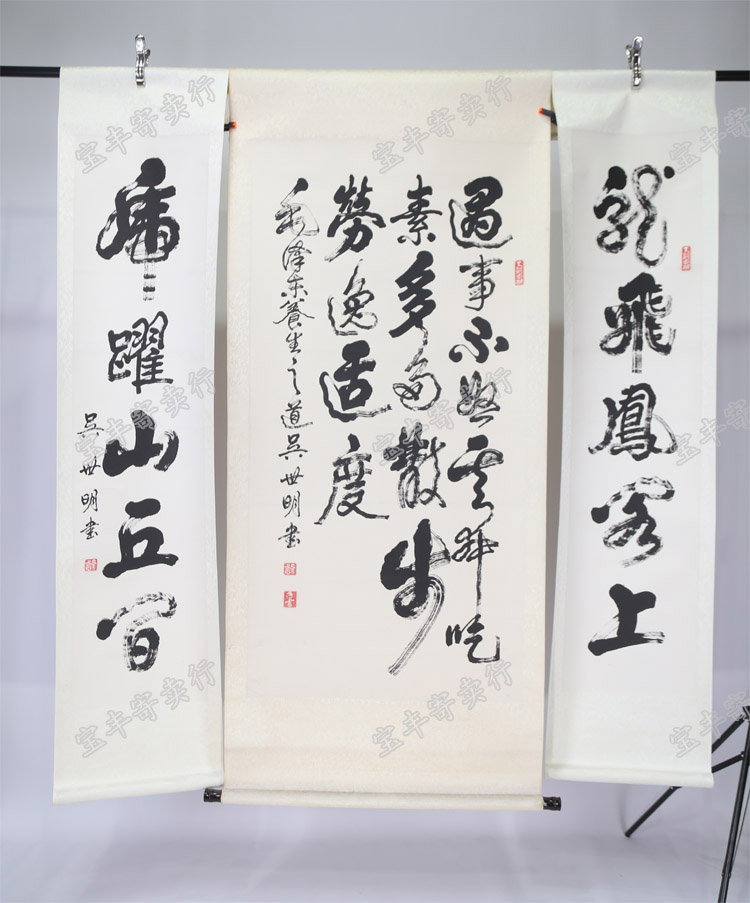 龍飛鳳閣上
遇事不怒基本吃
素多多散步
勞逸适度
毛澤東養生之道吳世明書
虎躍山丘間
吳世明書
宝丰寄卖行
宝丰寄卖行
宝丰寄卖行
宝丰寄卖行
宝丰寄卖行
宝丰寄卖行
宝丰寄卖行
宝丰寄卖行
宝丰寄卖行